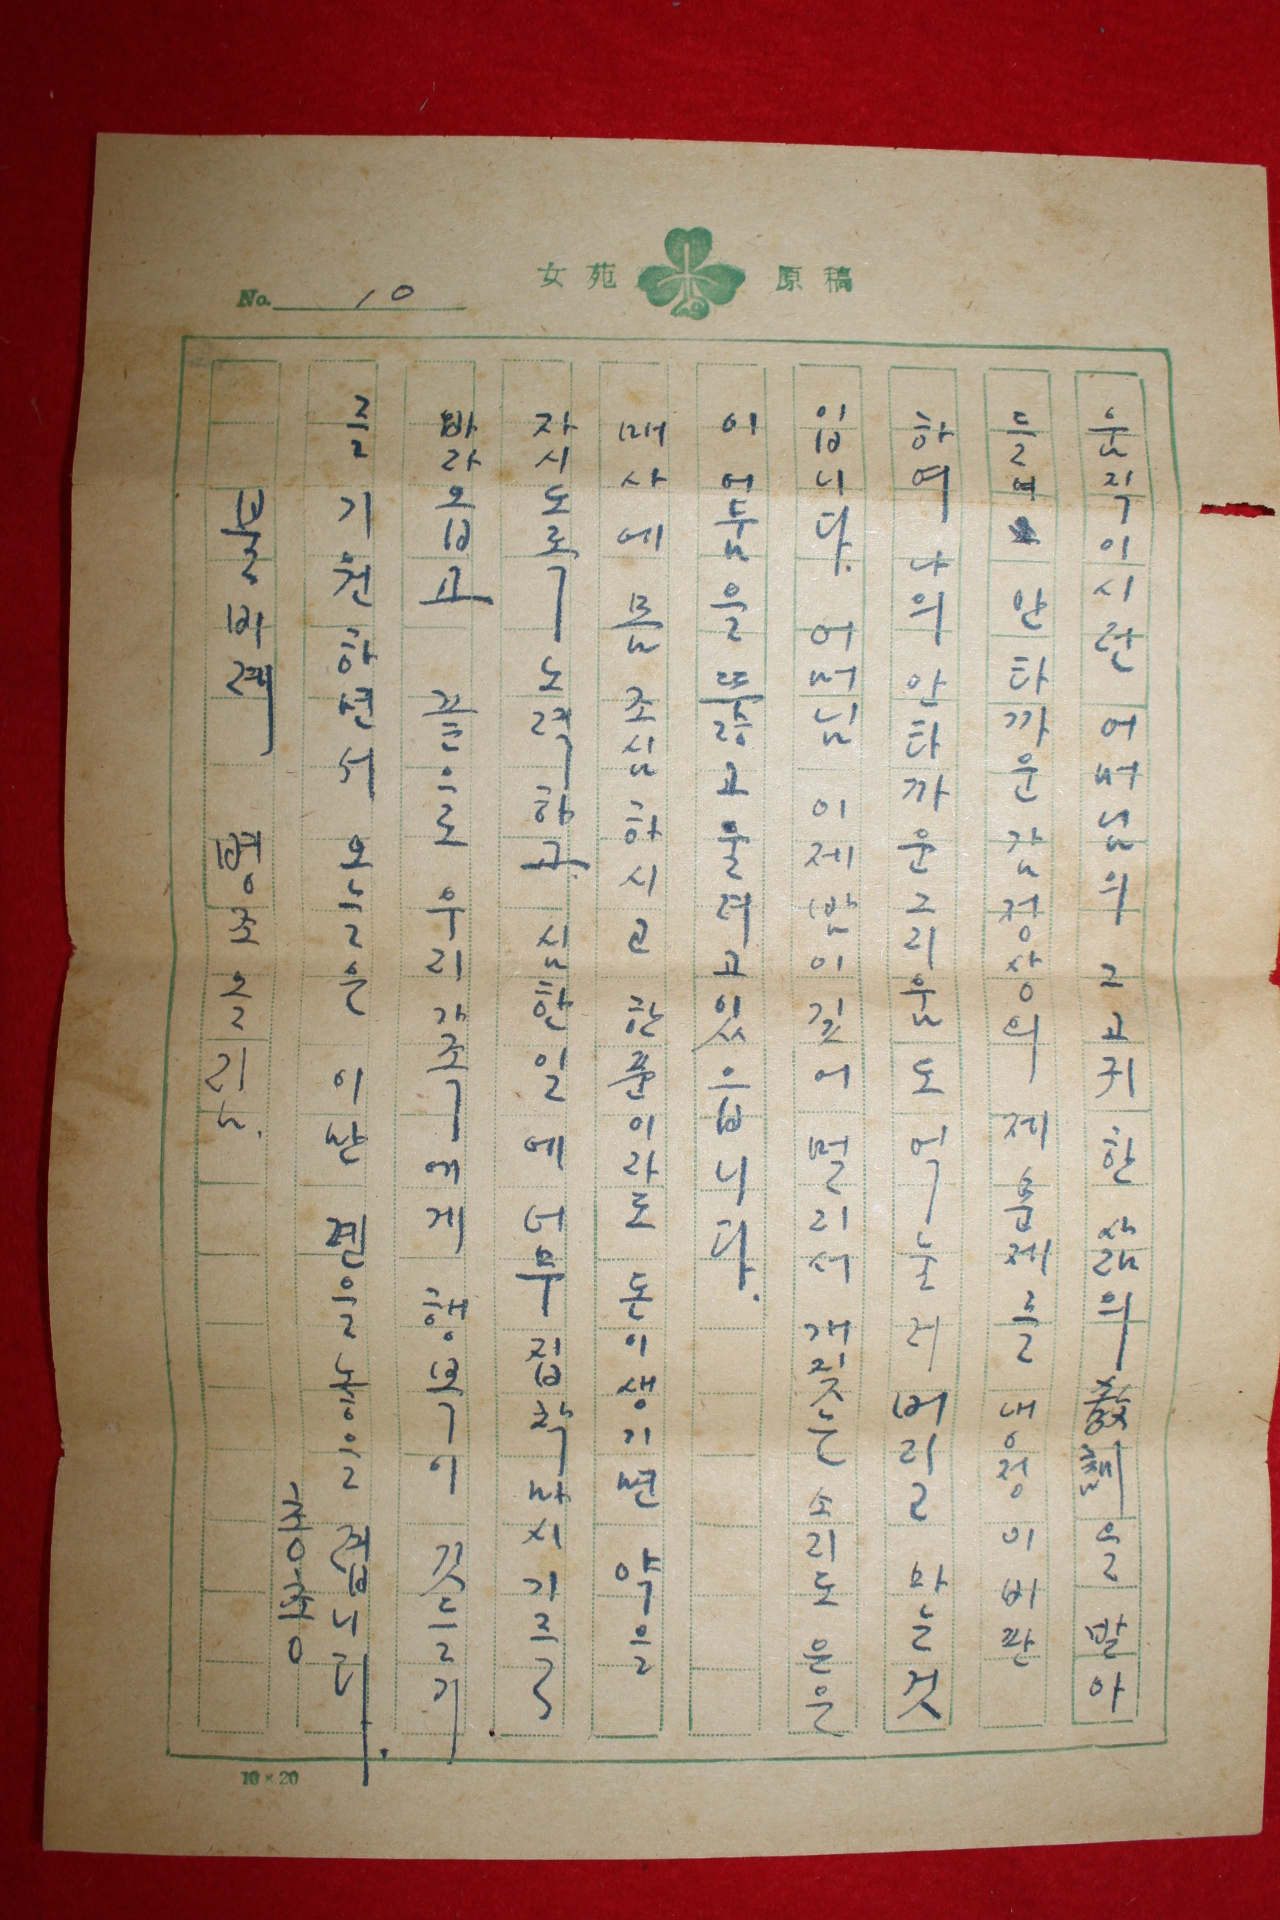 女苑 原稿
No. 10
움직이시란 어머님의 그 고귀한 삶의 敎訓을 받아
들여 안타까운 감정상의 제문제를 냉정이 비판
하여 나의 안타까운 그리움도 억눌러 버리고 마는 것
입니다. 어머님 이제 밤이 깊어 멀리서 개짖는 소리도
이 어둠을 뚫고 울려고 있읍니다.
매사에 몸 조심 하시고 한푼이라도 돈이 생기면 약을
자시도록 노력하고 심한 일에 너무 집착 마시기를
바라옵고 끝으로 우리 가족에게 행복이 깃들기
를 기원하면서 오늘은 이만 펜을 놓을
총총
불비례 병조 올리.
10×20